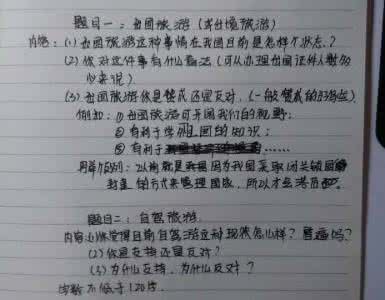 题目一：出国旅游（或出境旅游）
内容：(1) 出国旅游这种事情在我国目前是怎样个状态？
(2) 你对这件事有什么看法（可从办理出国证件人数多少来说）
(3) 出国旅游你是赞成还是反对，（一般赞成的好给）
例如：①出国旅游可开阔我们的视野；
②有利于学外国的知识；
③有利于……
再举个例：以前就是因为我国采取闭关锁国
封建 方式来管理国家，所以才会落后
题目二：自驾旅游
内容：(1)你觉得目前自驾游这种现状怎么样？普遍吗？
(2) 你是支持还是反对？
(3) 为什么支持，为什么反对？
字数不低于120字.